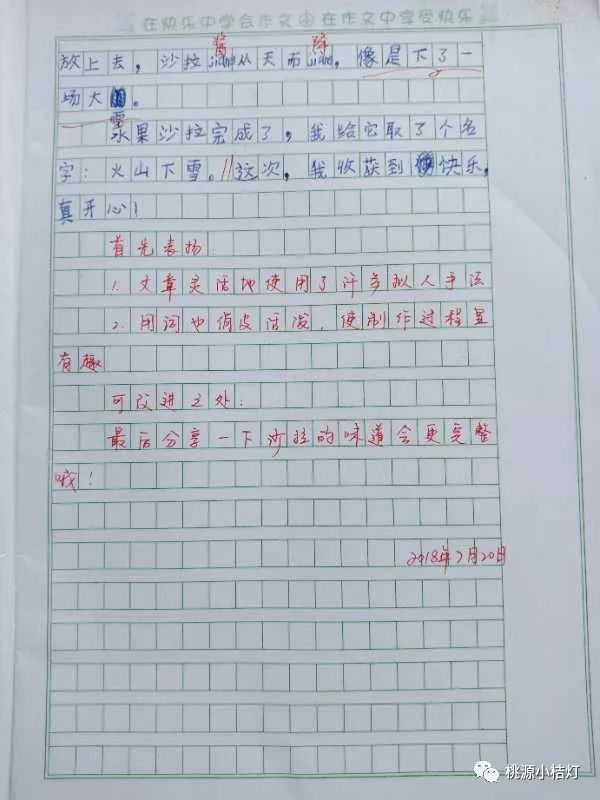 在快乐中学会作文 在作文中享受快乐
酱 降
放上去，沙拉jiàng从天而jiàng，像是下了一
场大。
雪
水果沙拉完成了，我给它取了个名
字：火山下雪。//这次，我收获到快乐，
真开心！
首先表扬：
1. 文章灵活地使用了许多拟人手法
2. 用词也俏皮活泼，使制作过程显
有趣
可改进之处：
最后分享一下沙拉的味道会更完整
哦！
2018年7月20日
桃源小桔灯